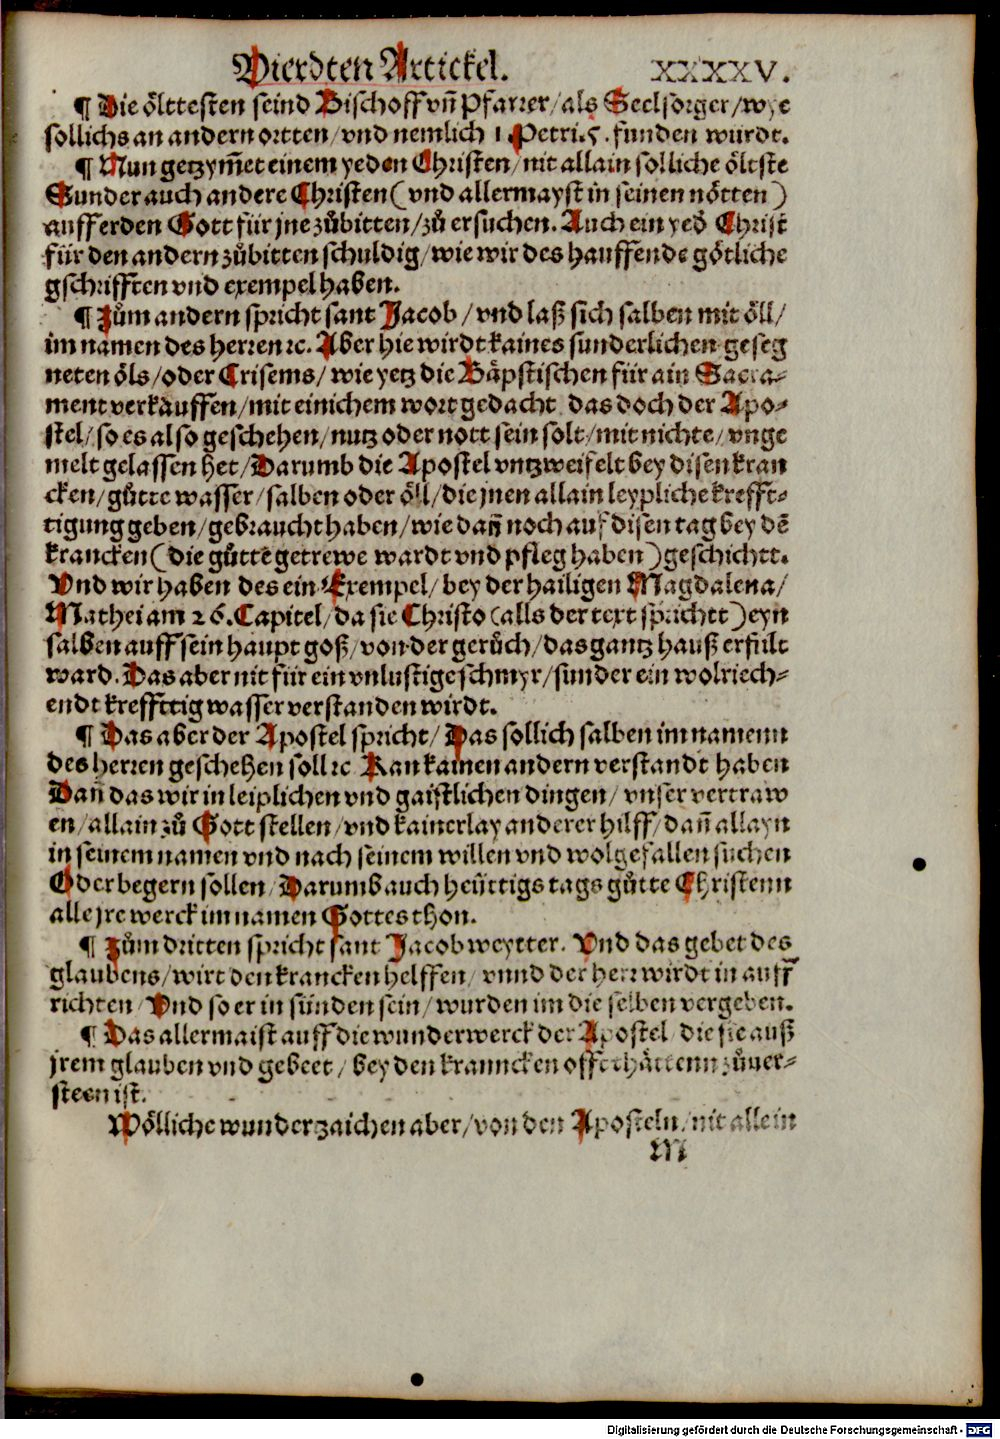 Vierdten Artickel. XXXXV.
¶ Die ölttesten seind Bischoff vñ Pfarrer/als Seelsorger/wye
sollichs an andern ortten/vnd nemlich 1. Petri.5. funden würdt.
¶ Nun getzym̃et einem yeden Christen/nit allain solliche öltste
Sunder auch andere Christen(vnd allermayst in seinen nötten)
auff erden Gott für jne zůbitten/zů ersuchen. Auch ein yed̃ Christ
für den andern zůbitten schuldig/wie wir des hauffende götliche
gschrifften vnd exempel haben.
¶ Zům andern spricht sant Jacob/vnd laß sich salben mit öll/
im namen des herren ꝛc. Aber hie wirdt kaines sunderlichen geseg
neten öls/oder Crisems/wie yetz die Bäpstischen für ain Sacra⸗
ment verkauffen/mit einichem wort gedacht, das doch der Apo⸗
stel/so es also geschehen/nutz oder nott sein solt/mit nichte/vnge
melt gelassen het/Darumb die Apostel vntzweifelt bey disen kran
cken/gůtte wasser/salben oder öll/die jnen allain leypliche krefft⸗
tigung geben/gebraucht haben/wie dañ noch auf disen tag bey dẽ
krancken(die gůtte getrewe wardt vnd pfleg haben)geschichtt.
Vnd wir haben des ein Exempel/bey der hailigen Magdalena/
Mathei am 26. Capitel/da sie Christo(alls der text sprichtt)eyn
salben auff sein haupt goß/von der gerůch/das gantz hauß erfült
ward. Das aber nit für ein vnlustige schmyr/sunder ein wolriech⸗
endt kreffttig wasser verstanden wirdt.
¶ Das aber der Apostel spricht/Das sollich salben im namenn
des herren geschehen soll ꝛc Kan kainen andern verstandt haben
Dañ das wir in leiplichen vnd gaistlichen dingen/vnser vertraw
en/allain zů Gott stellen/vnd kainerlay anderer hilff/dañ allayn
in seinem namen vnd nach seinem willen vnd wolgefallen suchen
Oder begern sollen/Darumb auch heüttigs tags gůtte Christenn
alle jre werck im namen Gottes thon.
¶ Zům dritten spricht sant Jacob weytter. Vnd das gebet des
glaubens/wirt den krancken helffen/vnnd der herr wirdt in auff
richten/Vnd so er in sünden sein/wurden im die selben vergeben.
¶ Das allermaist auff die wunderwerck der Apostel/die sie auß
jrem glauben vnd gebeet/bey den kranncken offt thättenn zůuer⸗
steen ist.
Wölliche wunderzaichen aber/von den Aposteln/nit allein
M
Digitalisierung gefördert durch die Deutsche Forschungsgemeinschaft - DFG